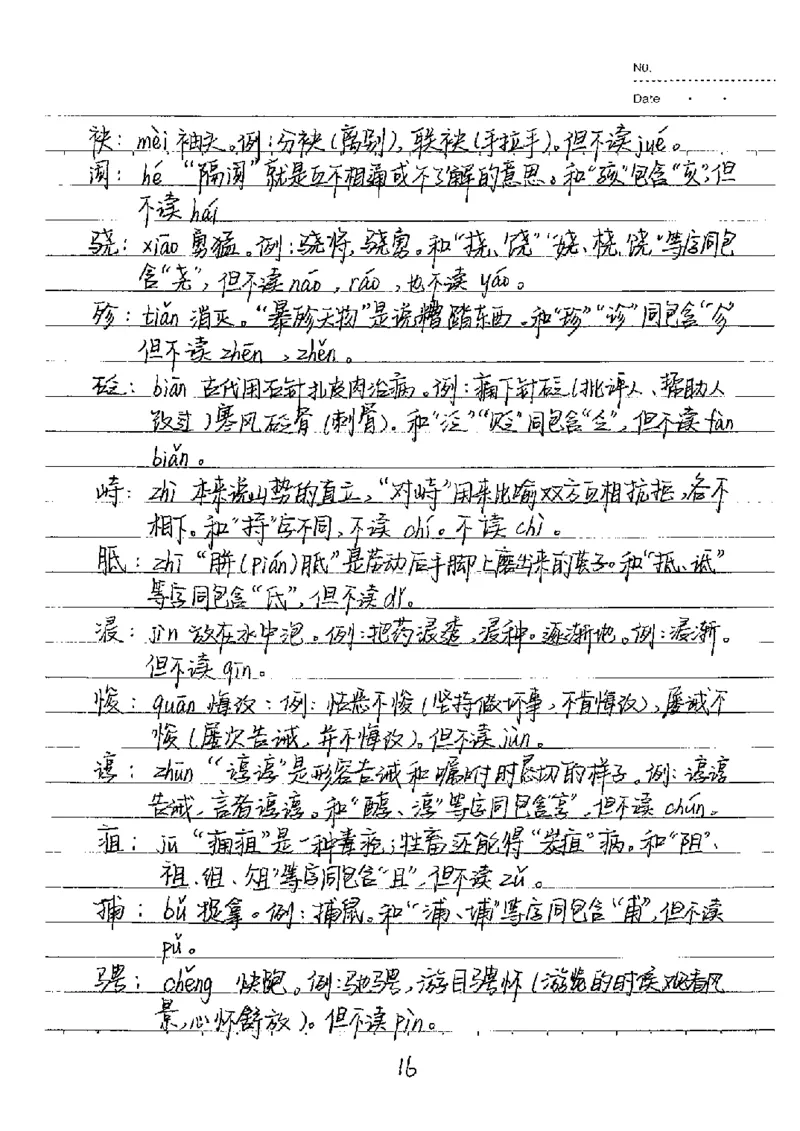 No.
Date
袂：mèi 袖头。例：分袂(离别)，联袂(手拉手)。但不读jué。
阂：hé “隔阂”就是互不相通或不了解的意思。和“孩”包含“亥”，但
不读hái
骁：xiāo 勇猛。例：骁将，骁勇。和“挠、饶”“娆、桡、饶”等字同包
含“尧”，但不读náo，ráo，也不读yáo。
殄：tiǎn 消灭。“暴殄天物”是说糟蹋东西。和“珍”“诊”同包含“㐱”
但不读zhēn，zhěn。
砭：biān 古代用石针扎皮肉治病。例：痛下针砭(批评人、帮助人
改过)寒风砭骨(刺骨)。和“泛”“贬”同包含“乏”，但不读fàn
biǎn。
峙：zhì 本来说山势的直立，“对峙”用来比喻双方互相抗拒，各不
相下。和“持”字不同，不读chí。不读chì。
胝：zhī “胼(pián)胝”是劳动后手脚上磨出来的茧子。和“抵、诋”
等字同包含“氐”，但不读dǐ。
浸：jìn 放在水中泡。例：把药浸透，浸种。逐渐地。例：浸渐。
但不读qīn。
悛：quān 悔改：例：怙恶不悛(坚持做坏事，不肯悔改)，屡戒不
悛(屡次告诫，并不悔改)。但不读jùn。
谆：zhūn “谆谆”是形容告诫和嘱咐时恳切的样子。例：谆谆
告戒，言者谆谆。和“醇、淳”等字同包含“享”，但不读chún。
疽：jū “痈疽”是一种毒疮；牲畜还能得“炭疽”病。和“阻、
祖、组、俎”等字同包含“且”，但不读zǔ。
捕：bǔ 捉拿。例：捕鼠。和“浦、埔”等字同包含“甫”，但不读
pǔ。
骋：chěng 快跑。例：驰骋，游目骋怀(游览的时候观看风
景，心怀舒放)。但不读pìn。
16